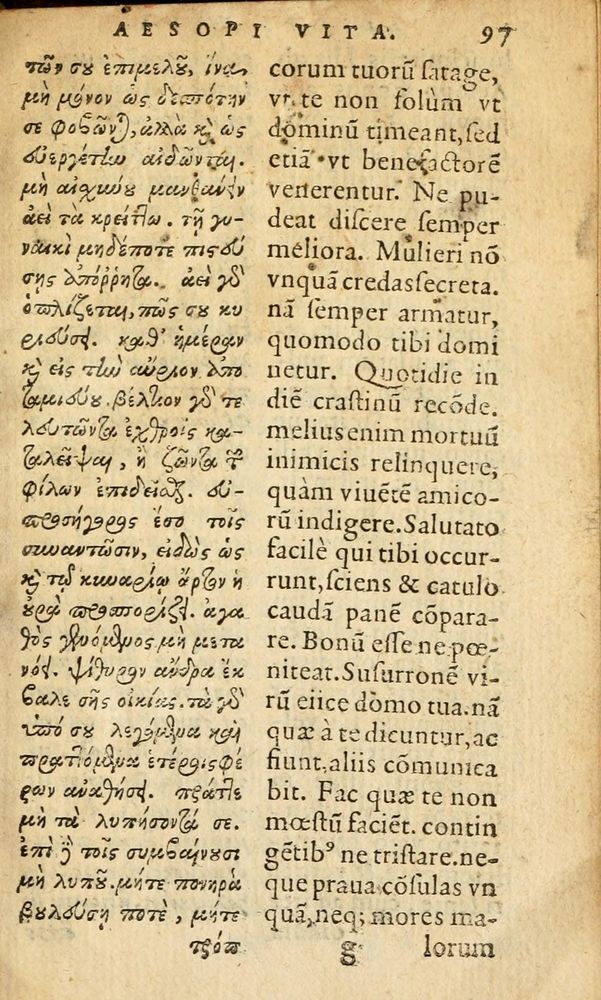 AESOPI VITA. 97
τῶν σου ἐπιμελοῦ, ἵνα
μὴ μόνον ὡς δεσπότην
σε φοβῶνται, ἀλλὰ καὶ ὡς
εὐεργέτην αἰδῶνται.
μὴ αἰσχύνου μανθάνειν
ἀεὶ τὰ κρείττω. τῇ γυ-
ναικὶ μηδέποτε πιστεύ
σῃς ἀπόρρητα. ἀεὶ γὰρ
ὁπλίζεται, πῶς σου κυ
ριεύσει. καθ' ἡμέραν
καὶ εἰς τὴν αὔριον ἀπο
ταμιεύου. βέλτιον γὰρ τε
λευτῶντα ἐχθροῖς κα-
ταλεῖψαι, ἢ ζῶντα τῶν
φίλων ἐπιδεῖσθαι. εὐ-
προσήγορος ἔσο τοῖς
συναντῶσιν, εἰδὼς ὡς
καὶ τῷ κυναρίῳ ἄρτον ἡ
οὐρὰ προσπορίζει. ἀγα
θὸς γενόμενος μὴ μετα
νόει. ψίθυρον ἄνδρα ἔκ
βαλε σῆς οἰκίας. τὰ γὰρ
ὑπό σου λεγόμενα καὶ
πραττόμενα ἑτέροις φέ
ρων ἀναθήσει. πρᾶττε
μὴ τὰ λυπήσοντά σε.
ἐπὶ δὲ τοῖς συμβαίνουσι
μὴ λυποῦ. μήτε πονηρὰ
βουλεύσῃ ποτὲ, μήτε
τρόπ
corum tuorũ satage,
vt te non solùm vt
dominũ timeant, sed
etiã vt benefactorẽ
venerentur. Ne pu-
deat discere semper
meliora. Mulieri nõ
vnquã credas secreta.
nã semper armatur,
quomodo tibi domi
netur. Quotidie in
diẽ crastinũ recõde.
melius enim mortuũ
inimicis relinquere,
quàm viuẽtẽ amico-
rũ indigere. Salutato
facilè qui tibi occur-
runt, sciens & catulo
caudã panẽ cõpara-
re. Bonũ esse ne pœ-
niteat. Susurronẽ vi-
rũ eiice domo tua. nã
quæ à te dicuntur, ac
fiunt, aliis cõmunica
bit. Fac quæ te non
mœstũ faciẽt. contin
gẽtibꝰ ne tristare. ne-
que praua cõsulas vn
quã, neq; mores ma-
g lorum